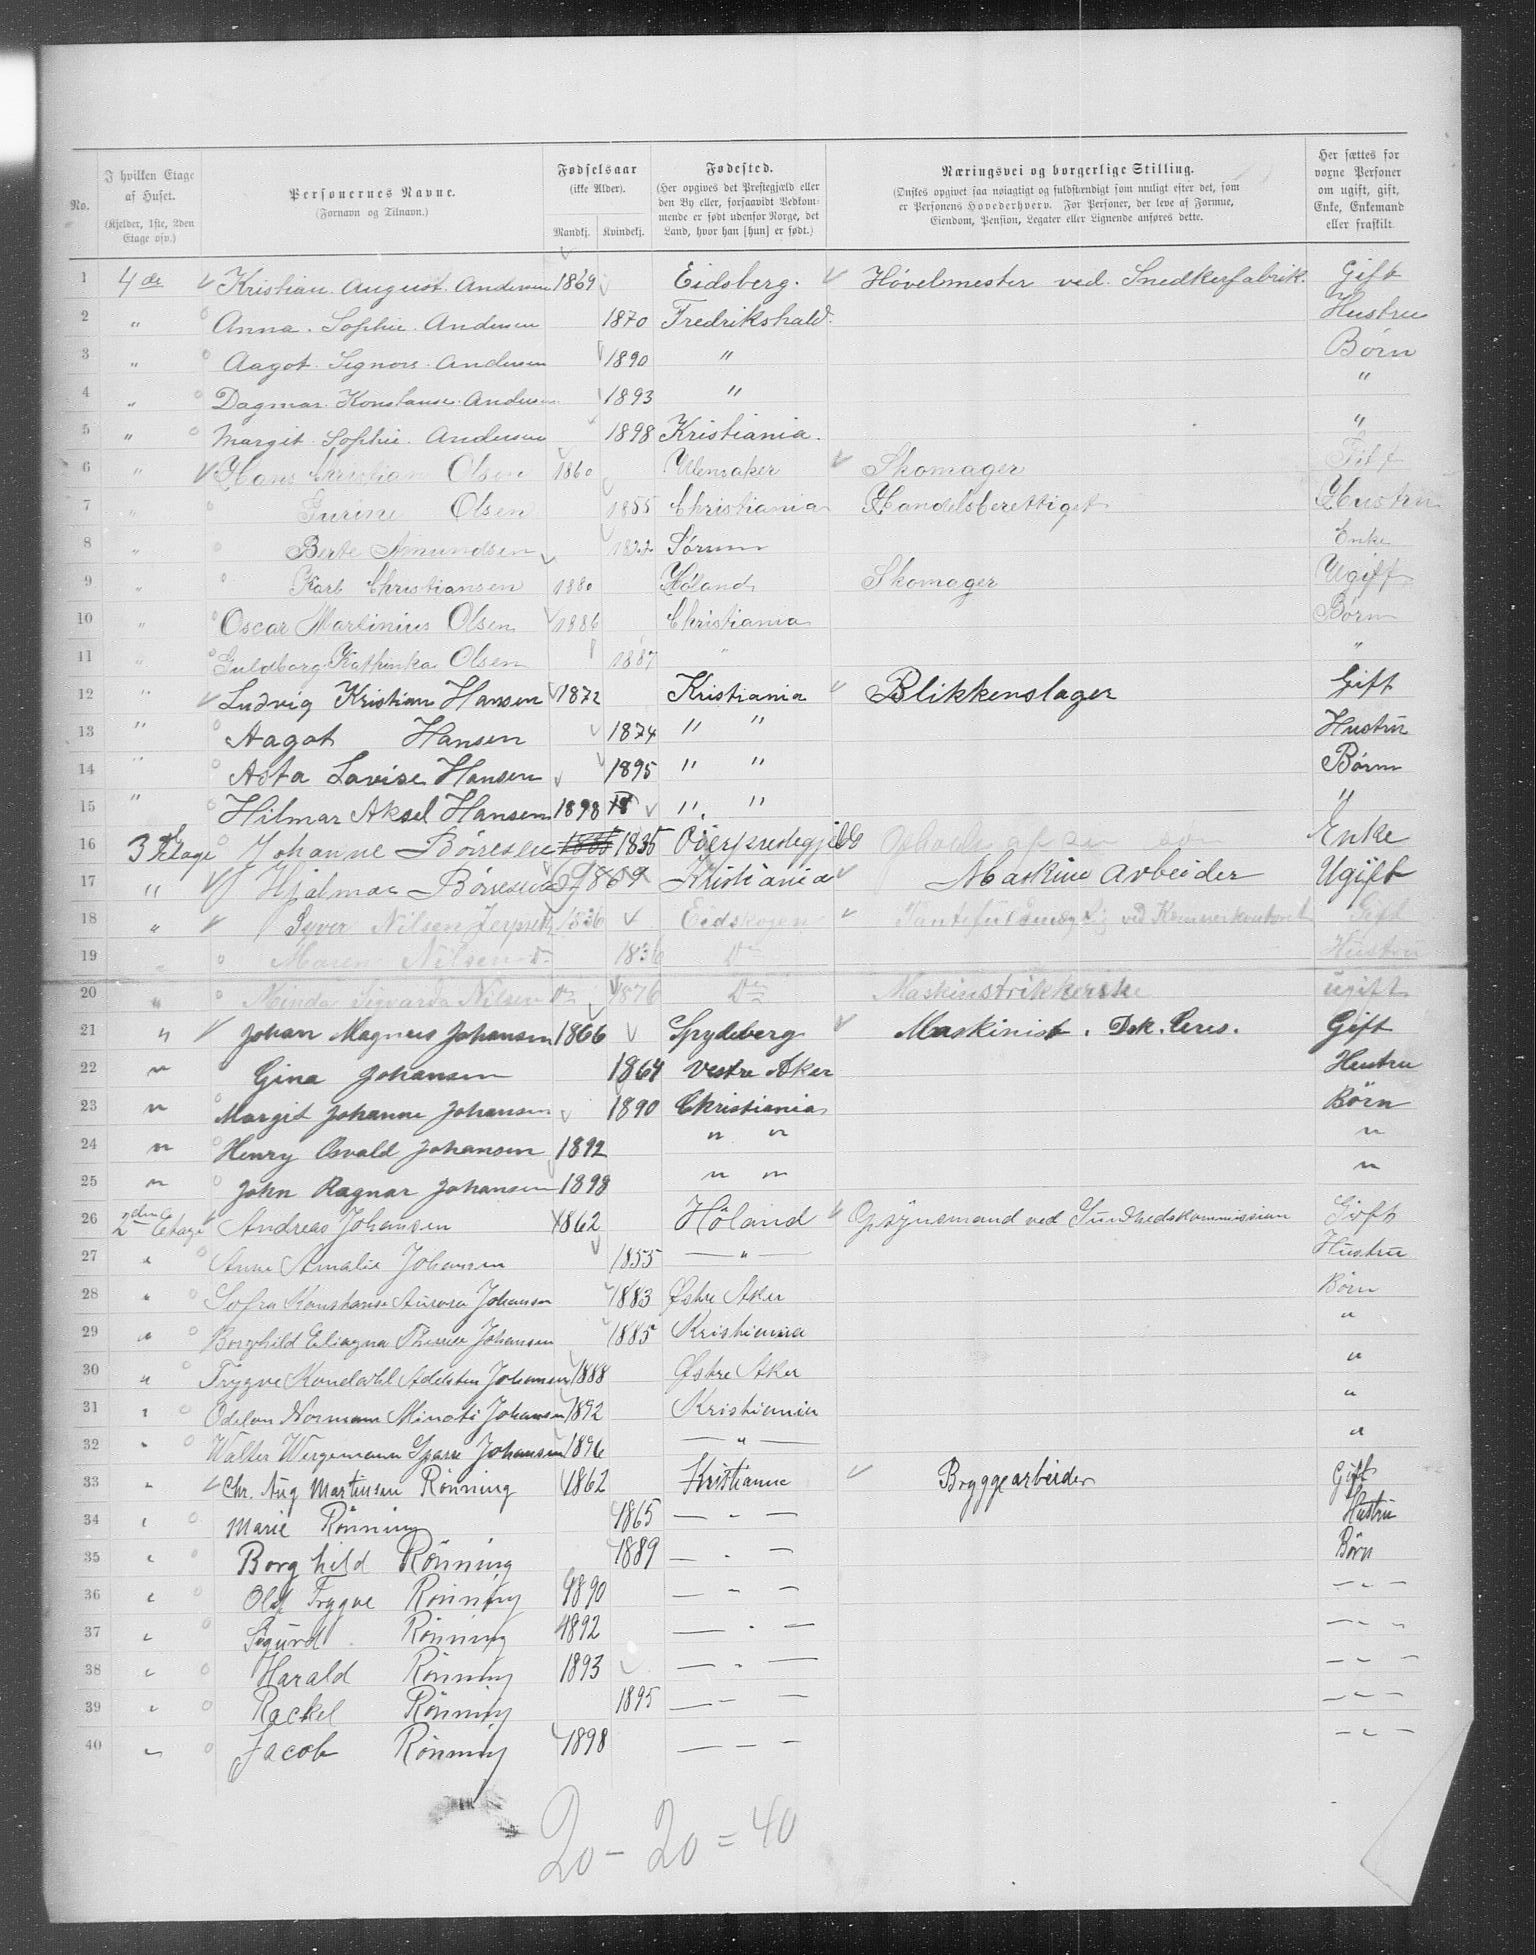 No.
I hvilken Etage af Huset. (Kjelder, 1ste, 2den Etage osv.)
Personernes Navne. (Fornavn og Tilnavn.)
Fødselsaar (ikke Alder). Mandkj. Kvindekj.
Fødested. (Her opgives det Prestegjæld eller den By eller, forsaavidt Vedkommende er født udenfor Norge, det Land, hvor han [hun] er født.)
Næringsvei og borgerlige Stilling. (Ønskes opgivet saa nøiagtigt og fuldstændigt som muligt efter det, som er Personens Hovederhverv. For Personer, der leve af Formue, Eiendom, Pension, Legater eller Lignende anføres dette.
Her sættes for voxne Personer om ugift, gift, Enke, Enkemand eller fraskilt.
1 4de Kristian August Andersen 1869 Eidsberg. Høvelmester ved Snedkerfabrik. Gift
2 " Anna Sophie Andersen 1870 Fredrikshald. Hustru
3 " Aagot Andersen 1890 " Børn
4 " Dagmar Konstanse Andersen 1893 " "
5 " Margit Sophie Andersen 1898 Kristiania. "
6 " Hans Christian Olsen 1860 Ullensaker Skomager Gift
7 " Gurine Olsen 1855 Christiania Handelsberettiget Hustru
8 " Berte Amundsen 1822 Sørum Enke
9 " Karl Christiansen 1880 Høland Skomager Ugift
10 " Oscar Martinius Olsen 1886 Christiania Børn
11 " Guldborg Kathinka Olsen 1887 " "
12 " Ludvig Kristian Hansen 1872 Kristiania Blikkenslager Gift
13 " Aagot Hansen 1874 " " Hustru
14 " Asta Lovise Hansen 1895 " " Børn
15 " Hilmar Aksel Hansen 1898 " " "
16 3 Etage Johanne Børresen 1835 Enke
17 " Hjalmar Børresen 1869 Kristiania Maskin Arbeider Ugift
18 " Syver Nilsen 1836 Eidskogen Gift
19 " Maren Nilsen Do 1836 Do Hustru
20 " Minda Sigvarda Nilsen Do 1876 Do Maskinstrikkerske ugift
21 " Johan Magnus Johansen 1866 Spydeberg Maskinist. Dsk. Ceres. Gift
22 " Gina Johansen 1864 Vestre Aker Hustru
23 " Margit Johanne Johansen 1890 Christiania Børn
24 " Henry Osvald Johansen 1892 " " "
25 " John Ragnar Johansen 1898 " " "
26 2den Etage Andreas Johansen 1862 Höland Opsynsmand ved Sundhedskommission Gift
27 " Anne Amalie Johansen 1855 — " — Hustru
28 " Sofia Konstanse Aurora Johansen 1883 Østre Aker Børn
29 " Borghild Therese Johansen 1885 Kristiania "
30 " Trygve Adelsten Johansen 1888 Østre Aker "
31 " Odelon Normann Minoti Johansen 1892 Kristiania "
32 " Walter Wergemann Sparre Johansen 1896 — " — "
33 " Chr. Aug Martinsen Rönning 1862 Kristiania Bryggearbeider Gift
34 " Marie Rönning 1865 — " — Hustru
35 " Borghild Rönning 1889 — " — Børn
36 " Olaf Trygve Rönning 1890 — " — — " —
37 " Sigurd Rönning 1892 — " — — " —
38 " Harald Rönning 1893 — " — — " —
39 " Rackel Rönning 1895 — " — — " —
40 " Jacob Rönning 1898 — — — — " —
20 — 20 = 40